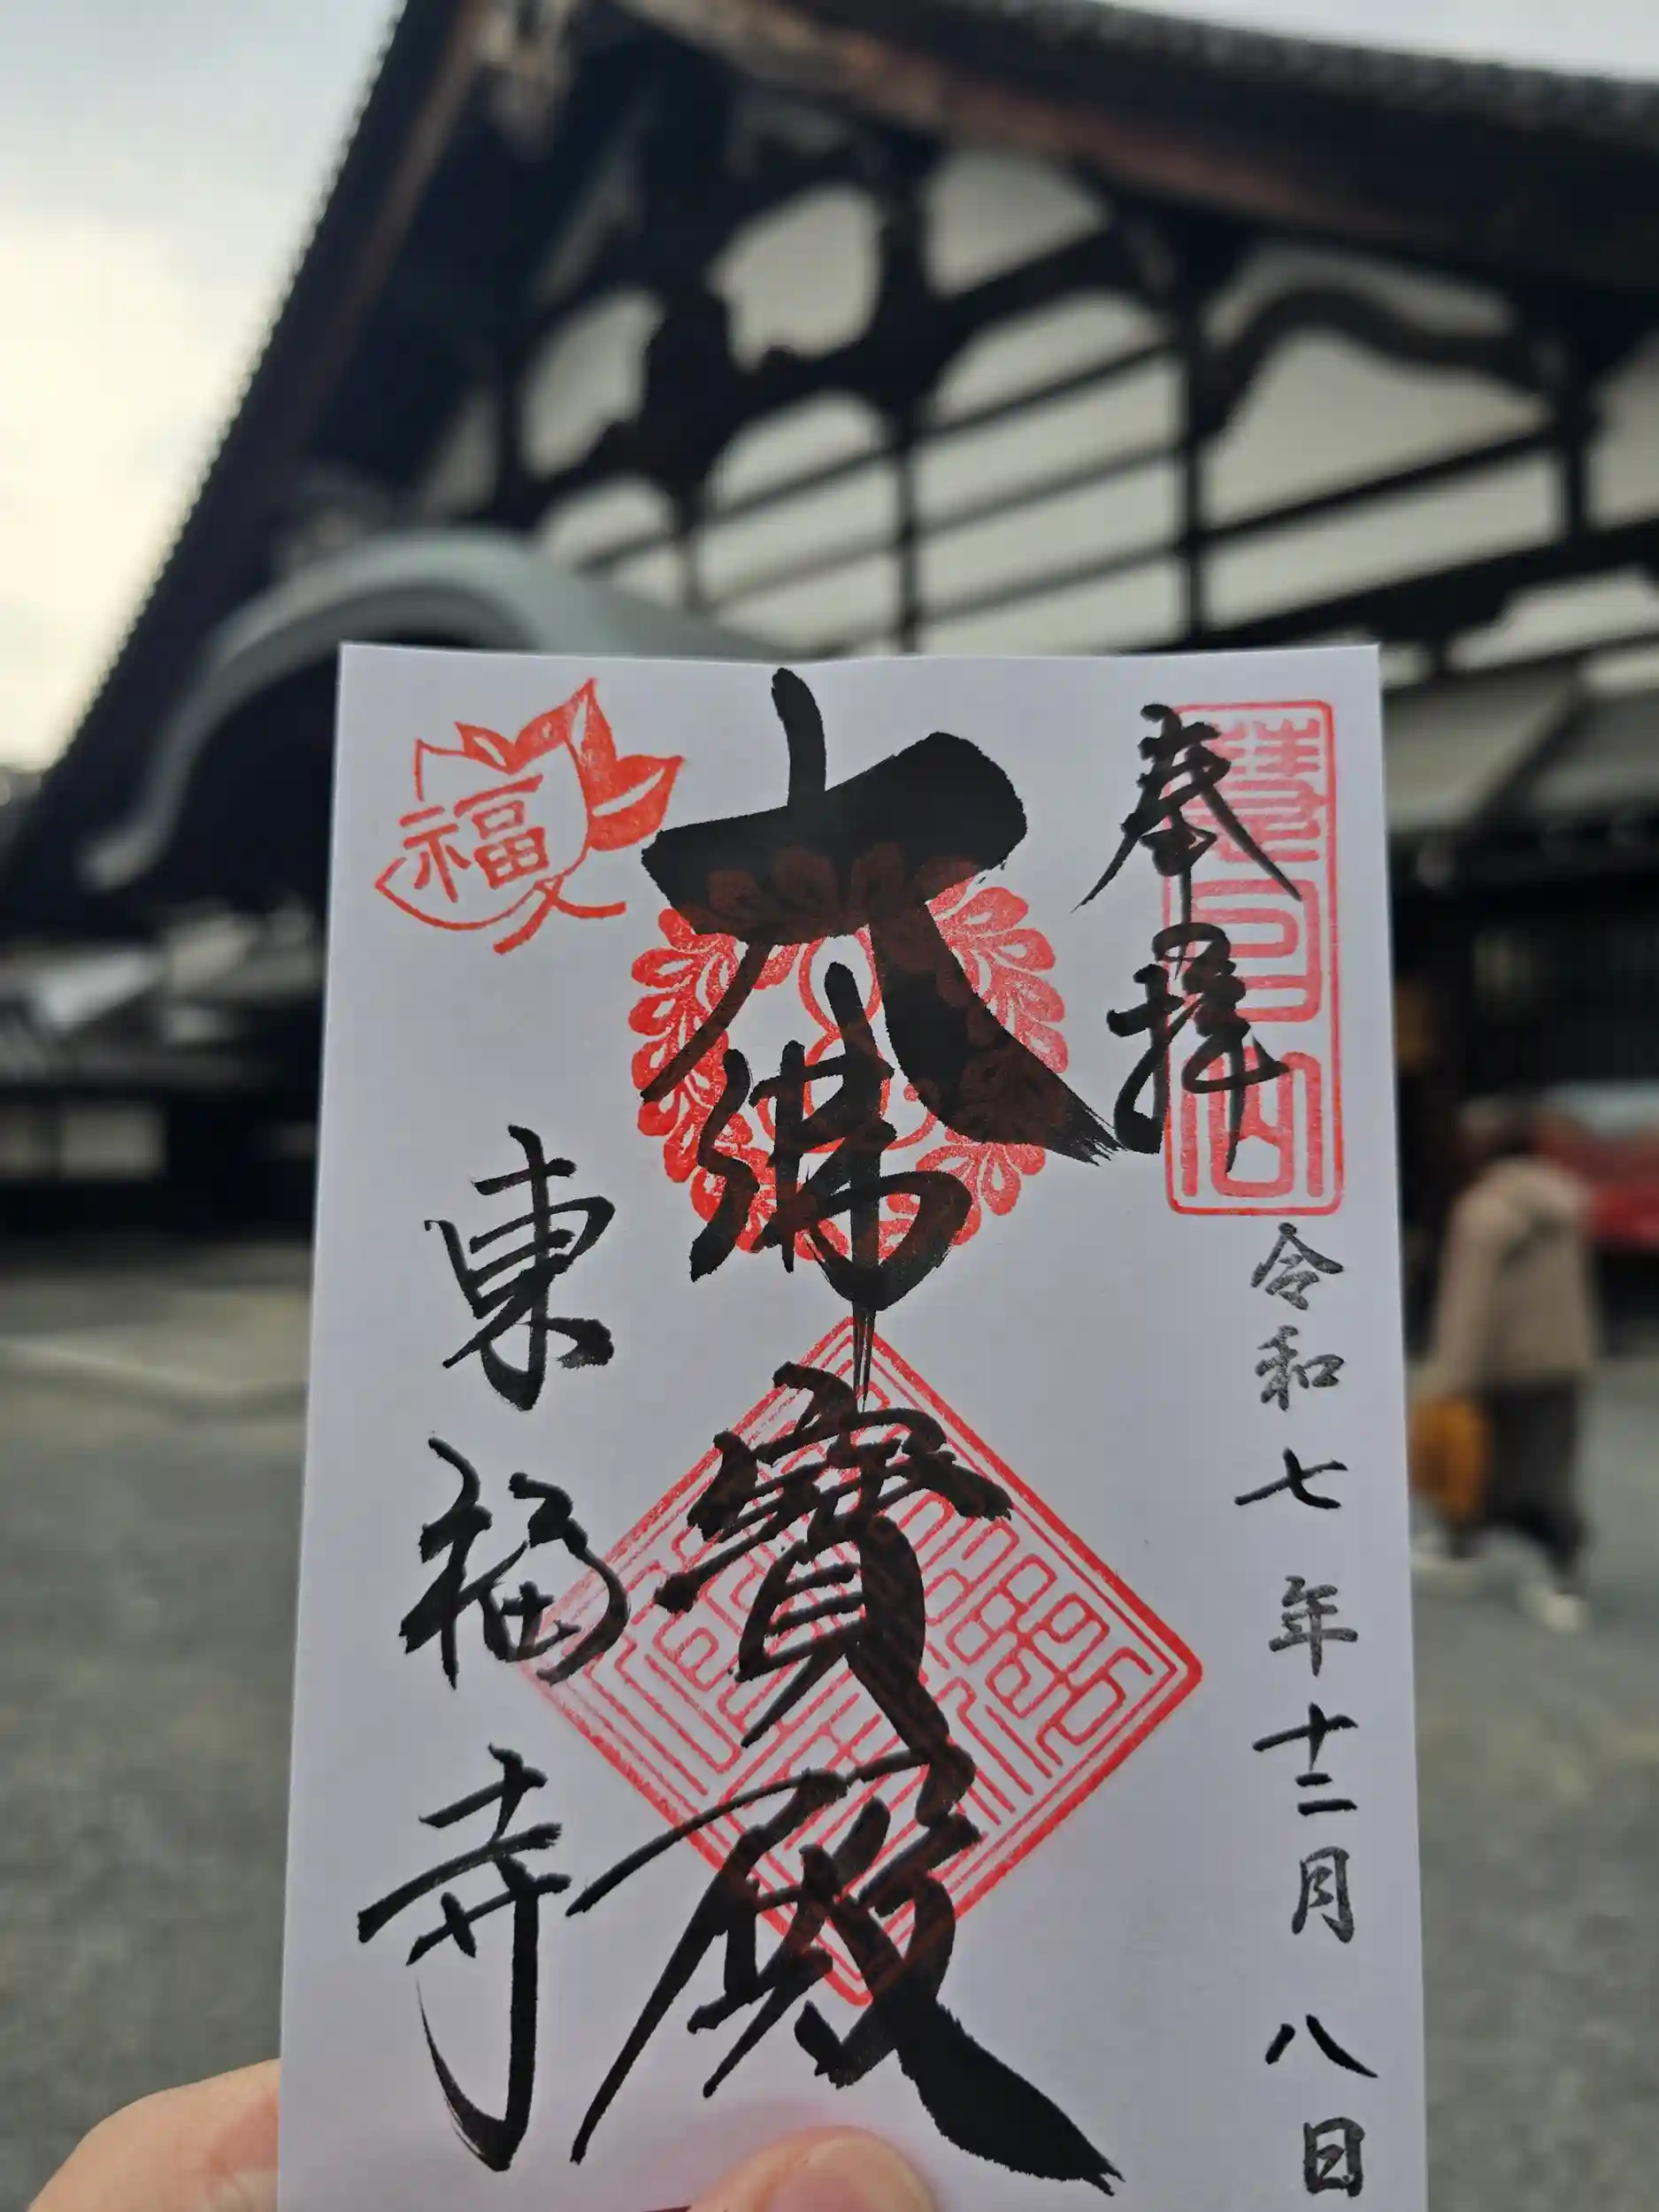 奉拝
慧日山
令和七年十二月八日
大佛寶殿
東福寺
福